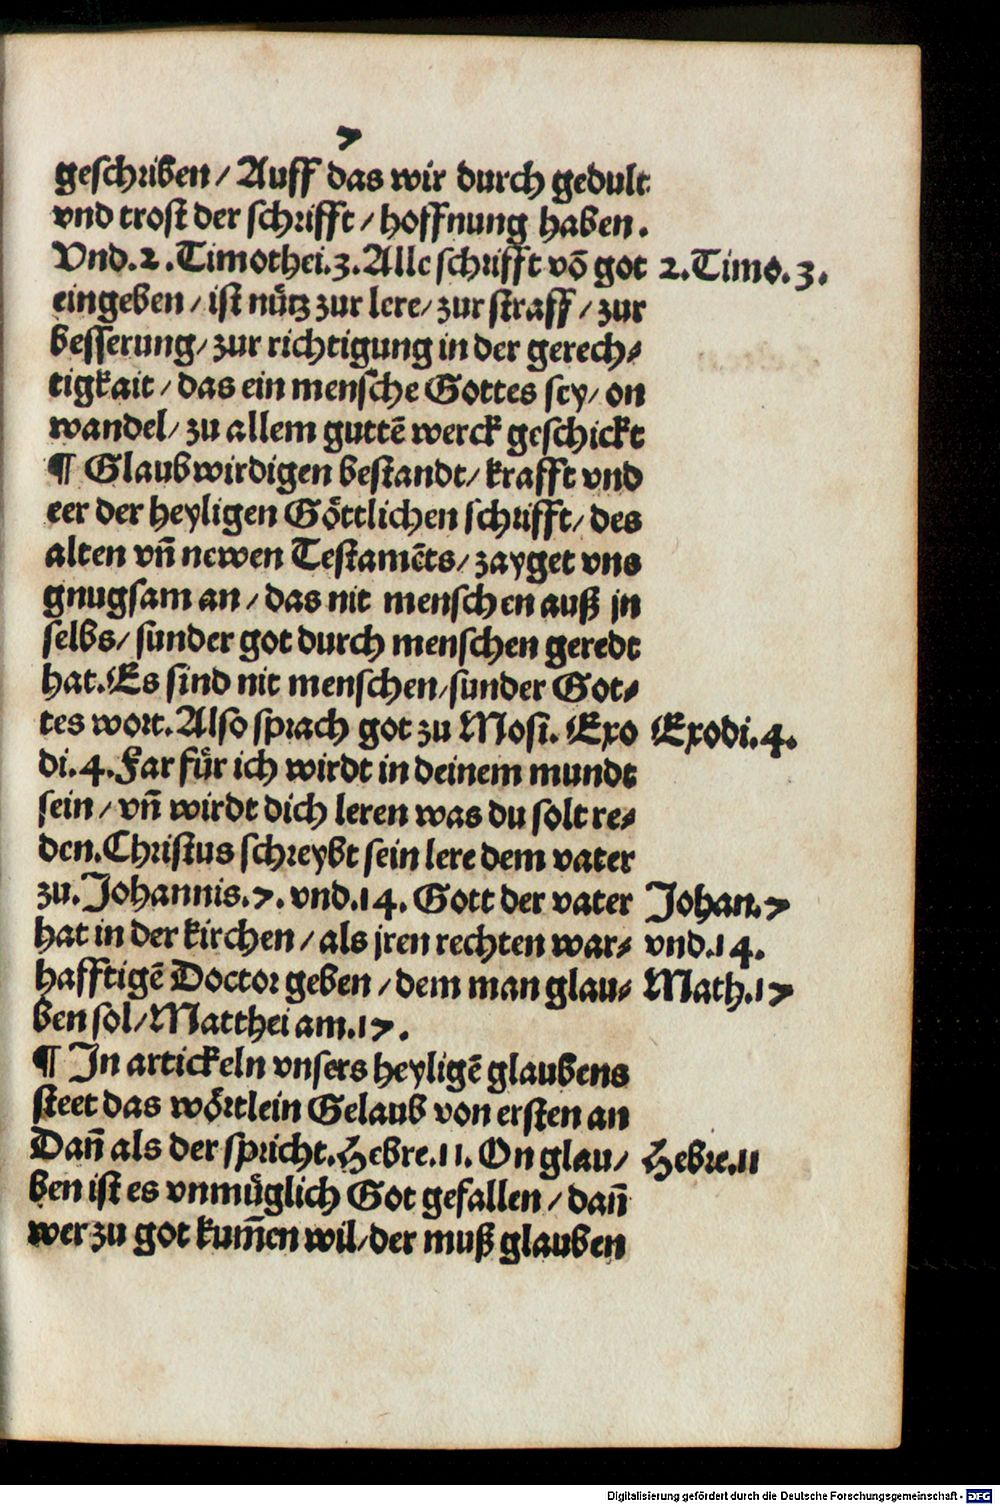 7
geschriben / Auff das wir durch gedult
vnd trost der schrifft / hoffnung haben.
Vnd.2.Timothei.3.Alle schrifft võ got 2.Timo.3.
eingeben / ist nütz zur lere / zur straff / zur
besserung / zur richtigung in der gerech⸗
tigkait / das ein mensche Gottes sey / on
wandel / zu allem guttẽ werck geschickt
¶ Glaubwirdigen bestandt / krafft vnd
eer der heyligen Göttlichen schrifft / des
alten vñ newen Testamẽts / zayget vns
gnugsam an / das nit menschen auß jn
selbs / sunder got durch menschen geredt
hat. Es sind nit menschen / sunder Got⸗
tes wort. Also sprach got zu Mosi. Exo Exodi.4.
di.4. Far für ich wirdt in deinem mundt
sein / vñ wirdt dich leren was du solt re⸗
den. Christus schreybt sein lere dem vater
zu. Johannis.7. vnd.14. Gott der vater Johan.7
hat in der kirchen / als jren rechten war⸗ vnd.14.
hafftigẽ Doctor geben / dem man glau⸗ Math.17
ben sol / Matthei am.17.
¶ In artickeln vnsers heyligẽ glaubens
steet das wörtlein Gelaub von ersten an
Dañ als der spricht. Hebre.11. On glau / Hebre.11
ben ist es vnmüglich Got gefallen / dañ
wer zu got kum̃en wil / der muß glauben
Digitalisierung gefördert durch die Deutsche Forschungsgemeinschaft - DFG